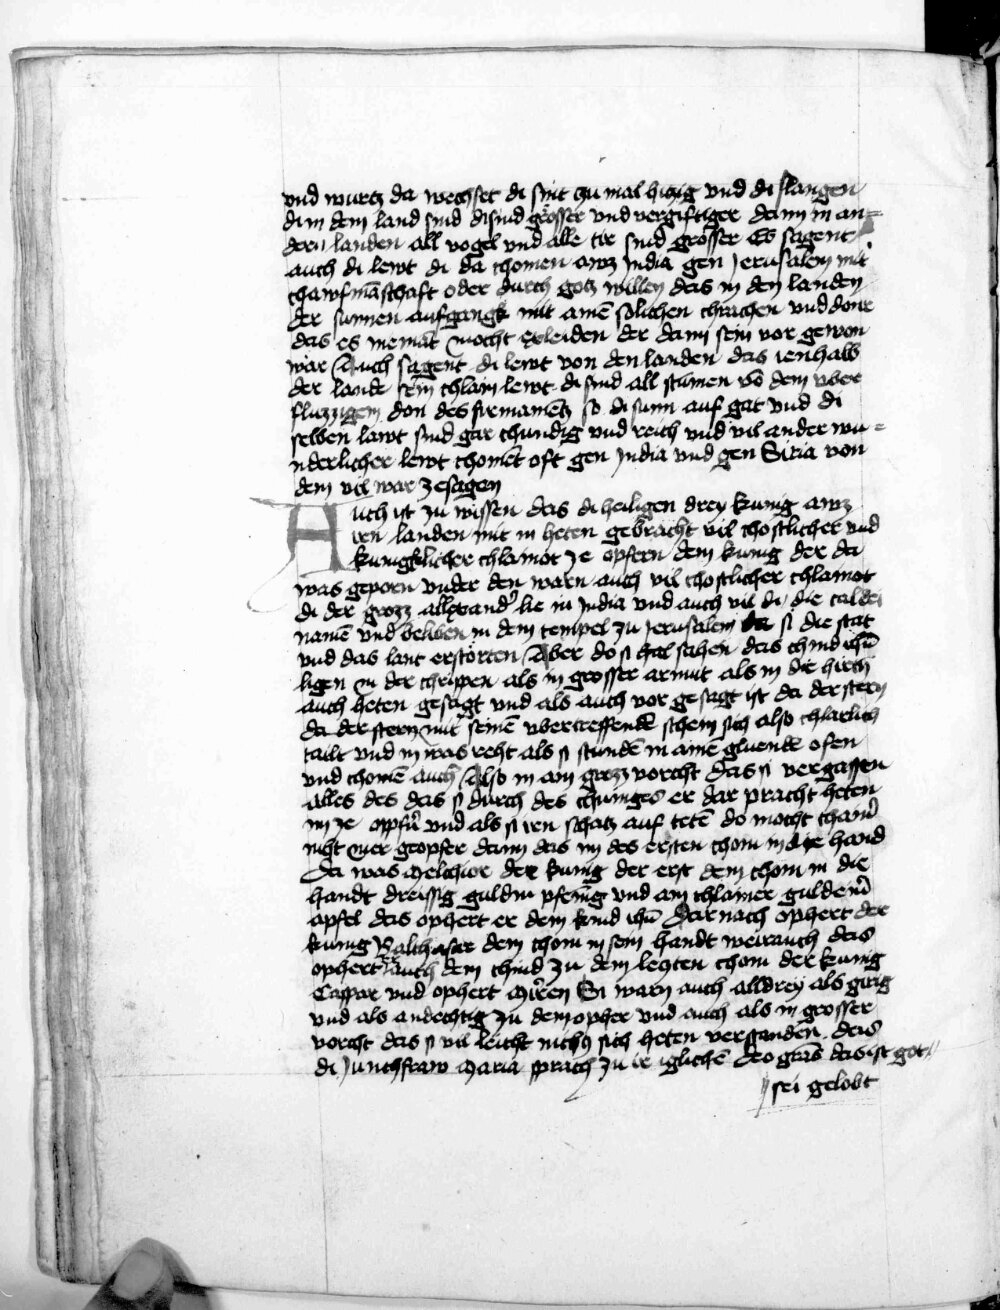 vnd wurcz da wechset di sint zu mal hiczig vnd di slangen
di in dem land sind di sind grosser vnd vergiftiger dann in an=
dern landen all vogel vnd alle tir sind grosser Es sagent
auch di lewt di da chomen awz India gen Jerusalem mit
chawfmāschaft oder durch gotz willen das in den landen
der sunnen aufgangk mit ainē solichen chrachen vnd done
das es niemāt mocht erleiden der dann sein vor gewon
wär Auch sagent di lewt von den landen das ienhalb
der lande sein chlain lewt di sind all stumen vō dem vber
fluzzigem don des firmamentz so di sunn auf gat vnd di
selben lawt sind gar chundig vnd reich vnd vil ander wu=
nderlicher lewt chomēt oft gen India vnd gen Siria von
dem vil war ze sagen
Auch ist zu wissen das di heiligen drey kunig awz
iren landen mit in heten gebracht vil chostlicher vnd
kunigklicher chlainot ze opfern dem kunig der da
was geporn vnder den warn auch vil chostlicher chlainot
di der grozz allexand' lie in India vnd auch vil di die caldei
namē vnd beliben in dem tempel zu Jerusalem da si die stat
vnd das lant erstorten Aber do si hal sahen das chind ihū
ligen in der chrippen als in grosser armut als in die hirtn
auch heten gesagt vnd als auch vor gesagt ist da der stern
da der stern mit seinē vbertreffendē schein sich also chlarlich
tailt vnd in was reht als si stundē in ainē gluendē ofen
vnd chomē auch Also in ain grozz vorcht das si vergassen
alles des das si durch des chuniges er dar pracht heten
im ze opfn̄ vnd als si iren schatz auf tetē do mocht chainē
niht mer geopfer dann das im des ersten chom in die hand
Da was Melchior der kunig der erst dem chom in die
handt dreissig guldin pfenig vnd ain chlainer guldeinr
apfel das ophert er dem kind ihū Dar nach ophert der
kunig Balthasar dem chom in sein handt weirauch das
ophert er auch dem chind zu dem leczten chom der kunig
Caspar vnd ophert Mirren Si warn auch all drey als girig
vnd als andechtig zu dem opher vnd auch als in grosser
vorcht das si vil leicht nichtz sich heten verstanden das
di Junchfraw Maria sprach zu ir iglichē Deo gras das ist got
sei gelobt